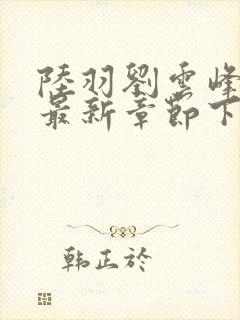 陸羽劉雲峰
最新章節下
韩正於